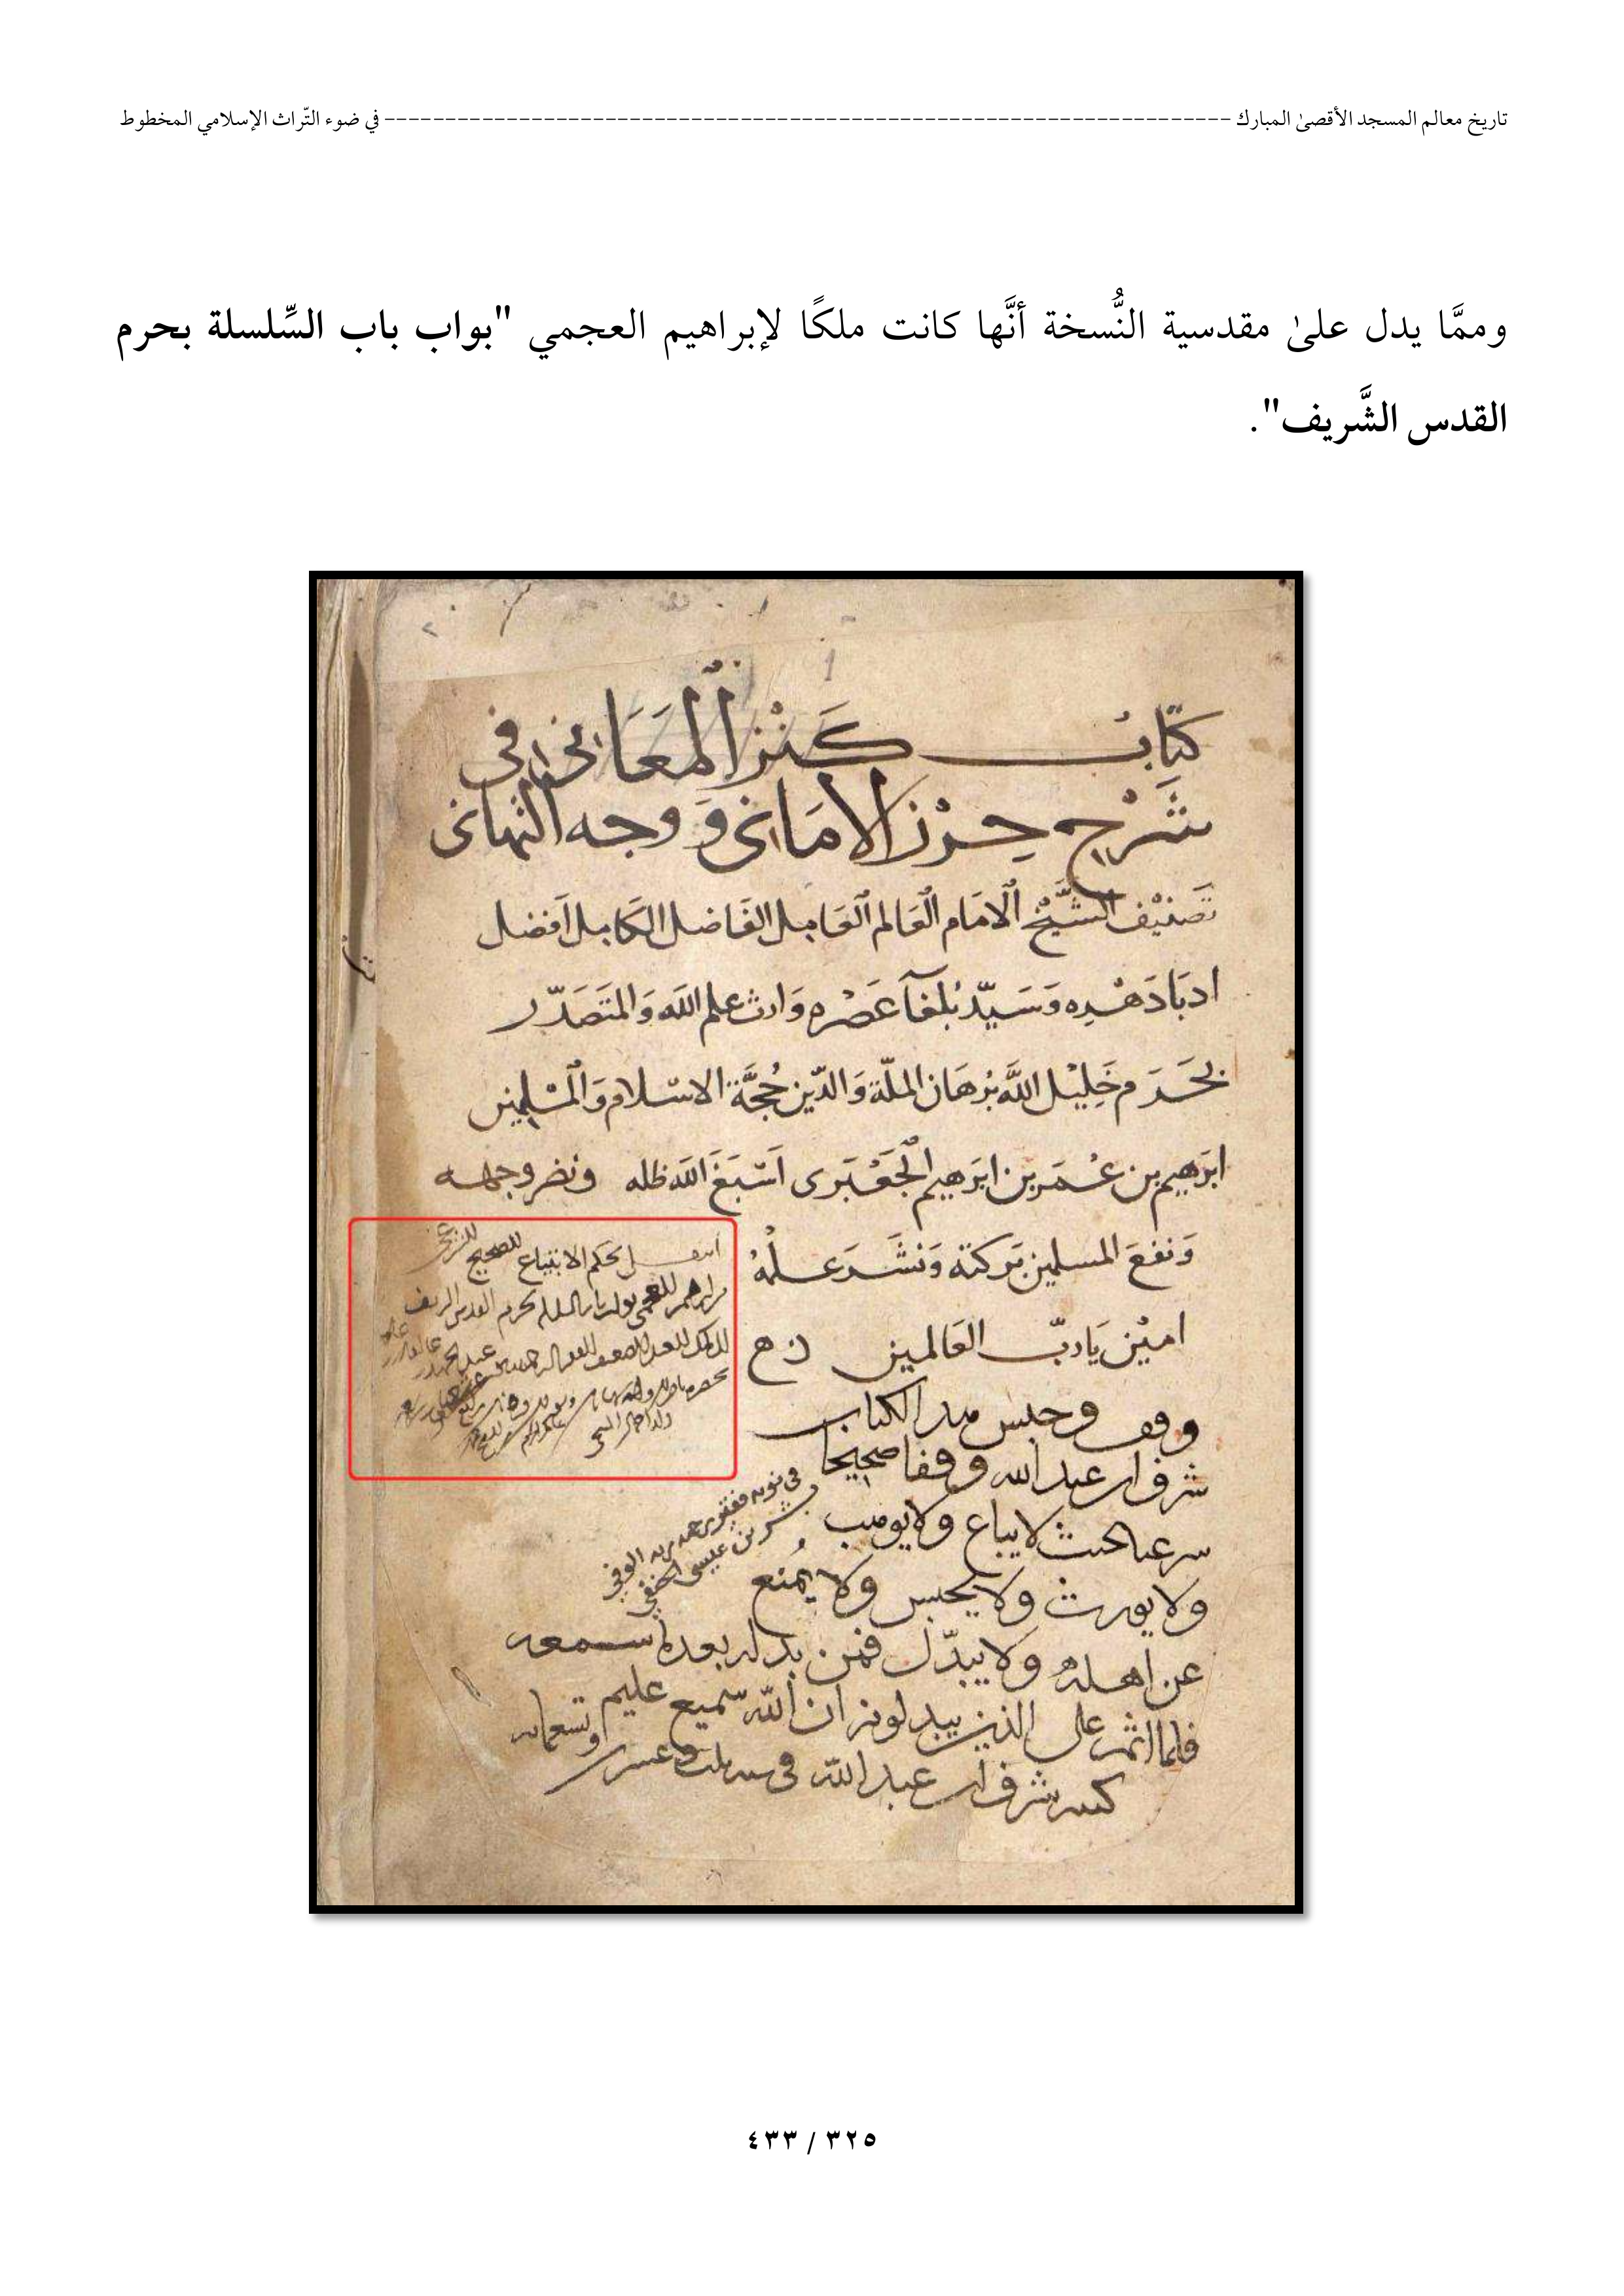 تاريخ معالم المسجد الأقصىٰ المبارك ---------------------------------------------------------------------- في ضوء التّراث الإسلامي المخطوط
وممَّا يدل علىٰ مقدسية النُّسخة أنَّها كانت ملكًا لإبراهيم العجمي "بواب باب السِّلسلة بحرم
القدس الشَّريف".
كتاب كنز المعاني في
شرح حرز الاماني ووجه التهاني
تصنيف الشيخ الامام العالم العامل الفاضل الكامل افضل
ادبا دهره وسيد بلغا عصره وارث علم الله والمتصدر
بحرم خليل الله برهان الملة والدين حجة الاسلام والمسلمين
ابرهيم بن عمر بن ابرهيم الجعبري اسبغ الله ظله ونضر وجهه
ونفع المسلمين ببركته ونشر علمه
امين يا رب العالمين
انتقل بحكم الابتياع الصحيح الشرعي
القدس الشريف
وقف وحبس هذا الكتاب
شرف ابن عبد الله وقفا صحيحا
شرعيا بحيث لا يباع ولا يوهب
ولا يورث ولا يحبس ولا يمنع
عن اهله ولا يبدل فمن بدله بعد ما سمعه
فانما اثمه على الذين يبدلونه ان الله سميع عليم
كتبه شرف ابن عبد الله في سنة وعشرين وتسعمايه
في نوبة
بن عيسى الحنفي
٣٢٥ / ٤٣٣